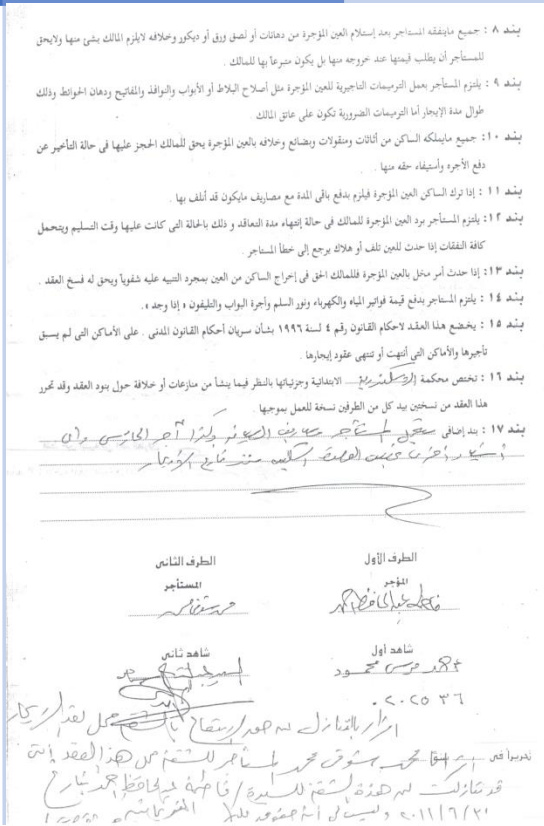 بند ٨ : جميع ماينفقه المستأجر بعد إستلام العين المؤجرة من دهانات أو لصق ورق أو ديكور وخلافه لايلزم المالك بشئ منها ولايحق
للمستأجر أن يطلب قيمتها عند خروجه منها بل يكون متبرعاً بها للمالك .
بند ٩ : يلتزم المستأجر بعمل الترميمات التاجيرية للعين المؤجرة مثل أصلاح البلاط أو الأبواب والنوافذ والمفاتيح ودهان الحوائط وذلك
طوال مدة الإيجار أما الترميمات الضرورية تكون على عاتق المالك
بند ١٠ : جميع مايملكه الساكن من أثاثات ومنقولات وبضائع وخلافه بالعين المؤجرة يحق للمالك الحجز عليها فى حالة التأخير عن
دفع الأجره وأستيفاء حقه منها .
بند ١١ : إذا ترك الساكن العين المؤجرة فيلزم بدفع باقى المدة مع مصاريف مايكون قد أتلف بها .
بند ١٢ : يلتزم المستأجر برد العين المؤجرة للمالك فى حالة إنتهاء مدة التعاقد و ذلك بالحالة التى كانت عليها وقت التسليم ويتحمل
كافة النفقات إذا حدث للعين تلف أو هلاك يرجع إلى خطأ المستاجر .
بند ١٣: إذا حدث أمر مخل بالعين المؤجرة فللمالك الحق فى إخراج الساكن من العين بمجرد التنبيه عليه شفوياً ويحق له فسخ العقد .
بند ١٤ : يلتزم المستاجر بدفع قيمة فواتير المياه والكهرباء ونور السلم وأجرة البواب والتليفون « إذا وجد » .
بند ١٥ : يخضع هذا العقد لاحكام القانون رقم ٤ لسنة ١٩٩٦ بشأن سريان أحكام القانون المدنى . على الأماكن التى لم يسبق
تأجيرها والأماكن التى أنتهت أو تنتهى عقود إيجارها .
بند ١٦ : تختص محكمة الإسكندرية الابتدائية وجزئياتها بالنظر فيما ينشأ من منازعات أو خلافة حول بنود العقد وقد تحرر
هذا العقد من نسختين بيد كل من الطرفين نسخة للعمل بموجبها .
بند ١٧ : بند إضافى يتحمل المستأجر مصاريف الصيانة وكذا أجر الحارس وأى
الطرف الأول الطرف الثانى
المؤجر المستأجر
فاطمة عبدالحافظ احمد
شاهد أول شاهد ثانى
محمود
٠٢٠٢٥٣٦
إقرار بالتنازل عن حق الإنتفاع محل عقد الإيجار
محمد المستأجر للشقة من هذا العقد إننى
قد تنازلت عن هذه الشقة للسيدة / فاطمة عبدالحافظ احمد بتاريخ
٢٠١١/٦/٢١ وليس لى أية حقوق